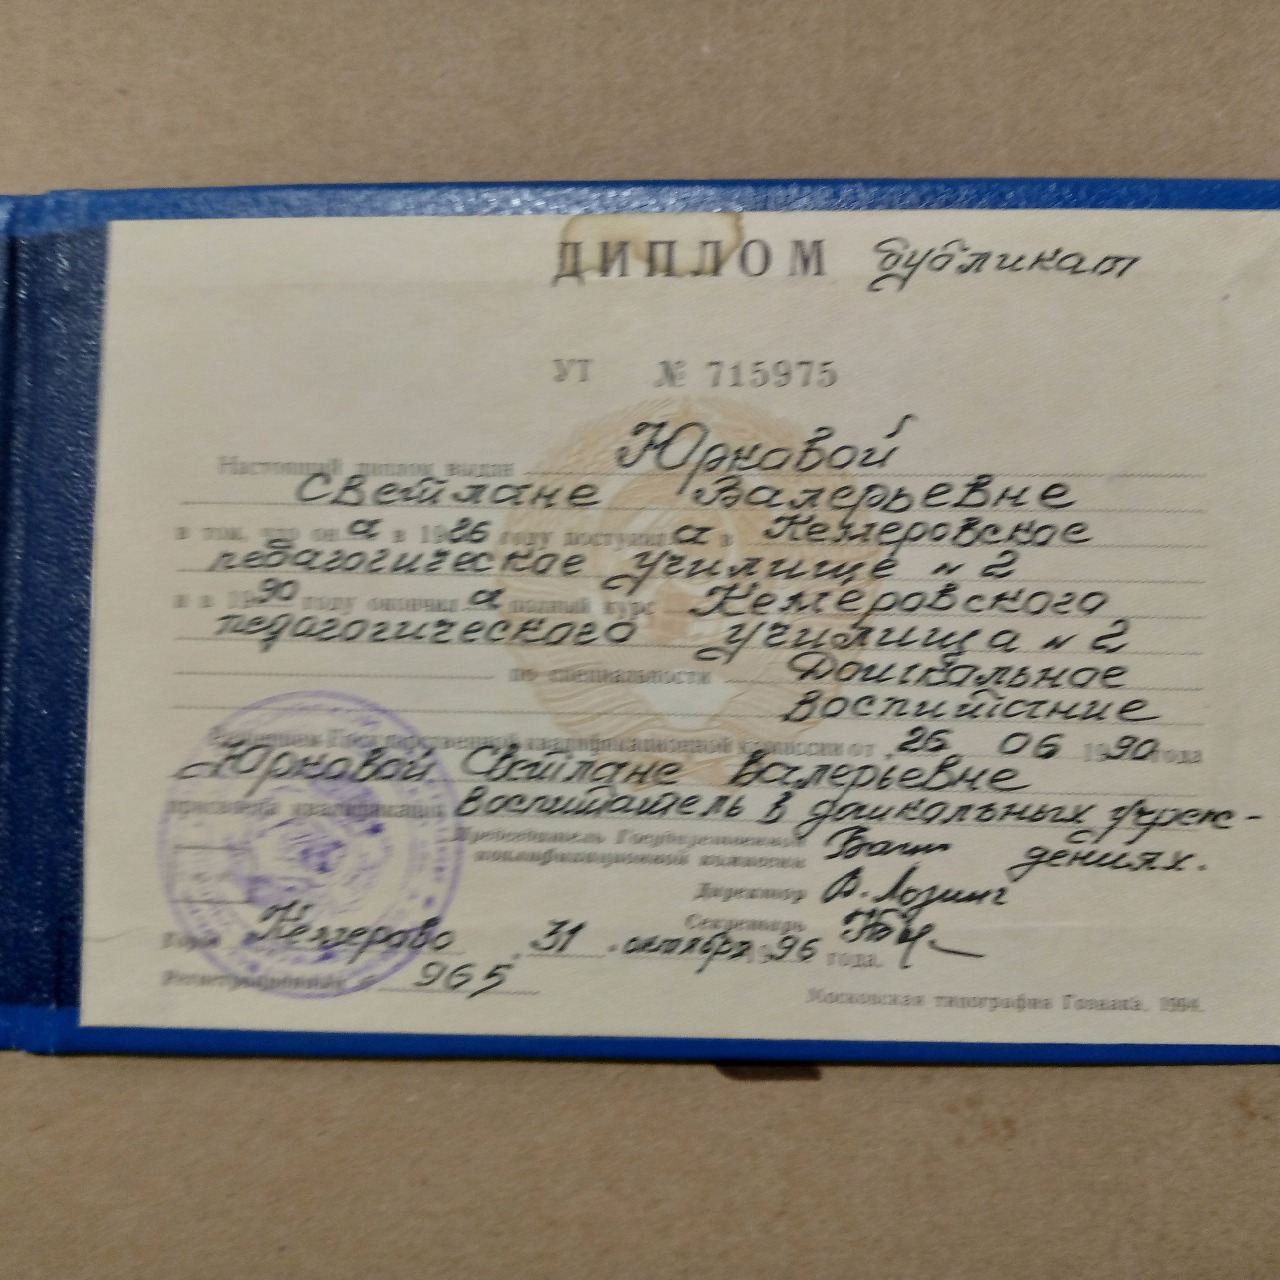 ДИПЛОМ дубликат
УТ № 715975
Настоящий диплом выдан Юрковой
Светлане Валерьевне
в том, что он а в 1986 году поступил а в Кемеровское
педагогическое училище № 2
и в 1990 году окончил а полный курс Кемеровского
педагогического училища № 2
по специальности Дошкольное
воспитание
Решением Государственной квалификационной комиссии от 26 06 1990 года
Юрковой Светлане Валерьевне
присвоена квалификация воспитатель в дошкольных учреж-
дениях.
Председатель Государственной
квалификационной комиссии
Директор
Секретарь
Город Кемерово 31 октября 1996 года.
Регистрационный № 965
Московская типография Гознака. 1994.